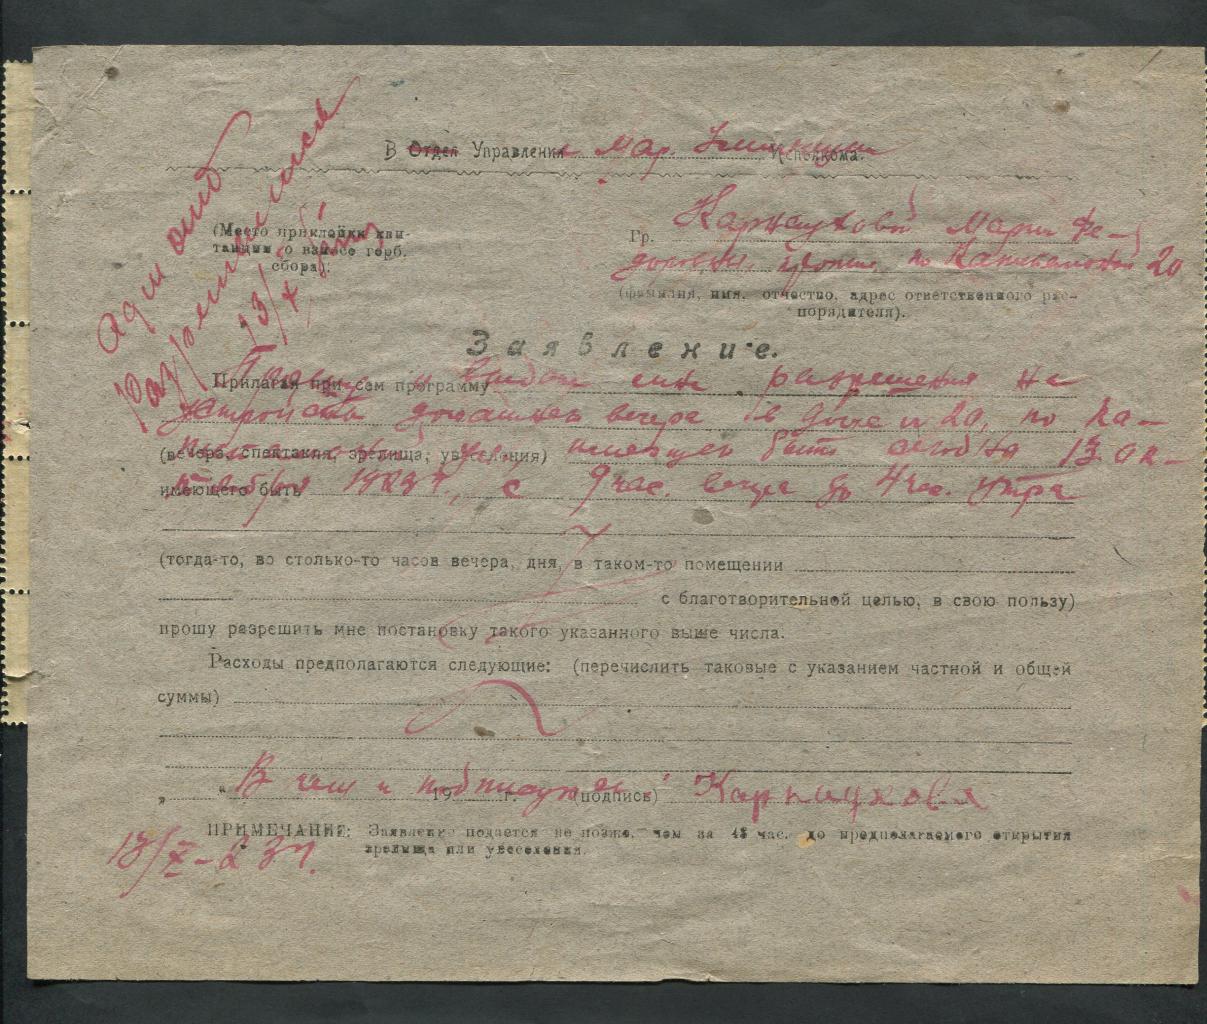 Адм отд
Разрешается
13/X
В Отдел Управления Мар. Исполкома.
(Место приклейки кви-
танции о взносе герб.
сбора).
Гр. Карнауховой Марии Фе-
доровны, по 20
(фамилия, имя, отчество, адрес ответственного рас-
порядителя).
Заявление.
Прилагая при сем программу
Прошу выдать мне разрешения на
устройство домашнего вечера в доме № 20, по Ка-
(вечера, спектакля, зрелища, увеселения) имеющего быть сегодня 13 ок-
имеющего быть тября 1923 г., с 9 час. вечера до 4 час. утра
(тогда-то, во столько-то часов вечера, дня, в таком-то помещении
с благотворительной целью, в свою пользу)
прошу разрешить мне постановку такого указанного выше числа.
Расходы предполагаются следующие: (перечислить таковые с указанием частной и общей
суммы)
„ “ 19 г. (подпись)
В чем и подписуюсь Карнаухова
ПРИМЕЧАНИЕ: Заявление подается не позже, чем за 48 час. до предполагаемого открытия
зрелища или увеселения.
13/X-23 г.